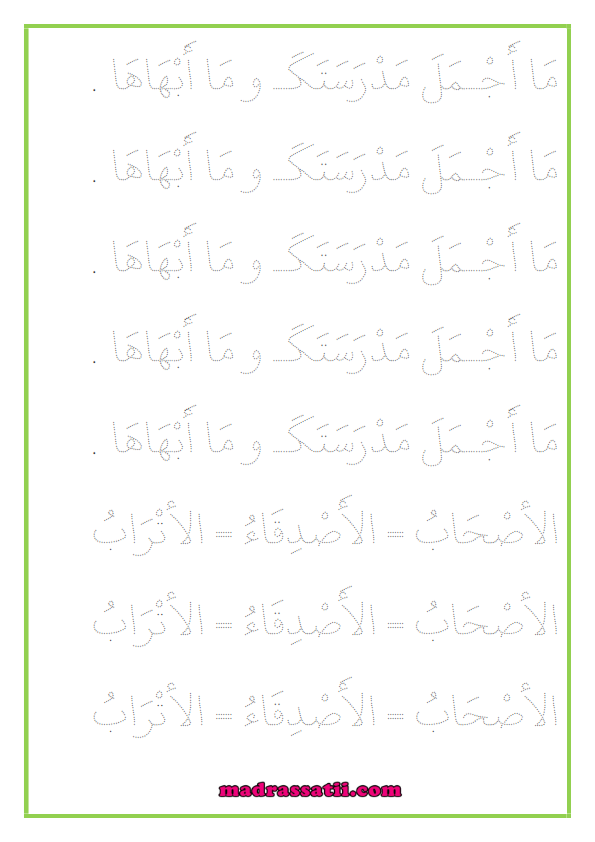 مَا أَجْمَلَ مَدْرَسَتَكَ و مَا أَبْهَاهَا .
مَا أَجْمَلَ مَدْرَسَتَكَ و مَا أَبْهَاهَا .
مَا أَجْمَلَ مَدْرَسَتَكَ و مَا أَبْهَاهَا .
مَا أَجْمَلَ مَدْرَسَتَكَ و مَا أَبْهَاهَا .
مَا أَجْمَلَ مَدْرَسَتَكَ و مَا أَبْهَاهَا .
الأَصْحَابُ = الأَصْدِقَاءُ = الأَتْرَابُ
الأَصْحَابُ = الأَصْدِقَاءُ = الأَتْرَابُ
الأَصْحَابُ = الأَصْدِقَاءُ = الأَتْرَابُ
madrassatii.com